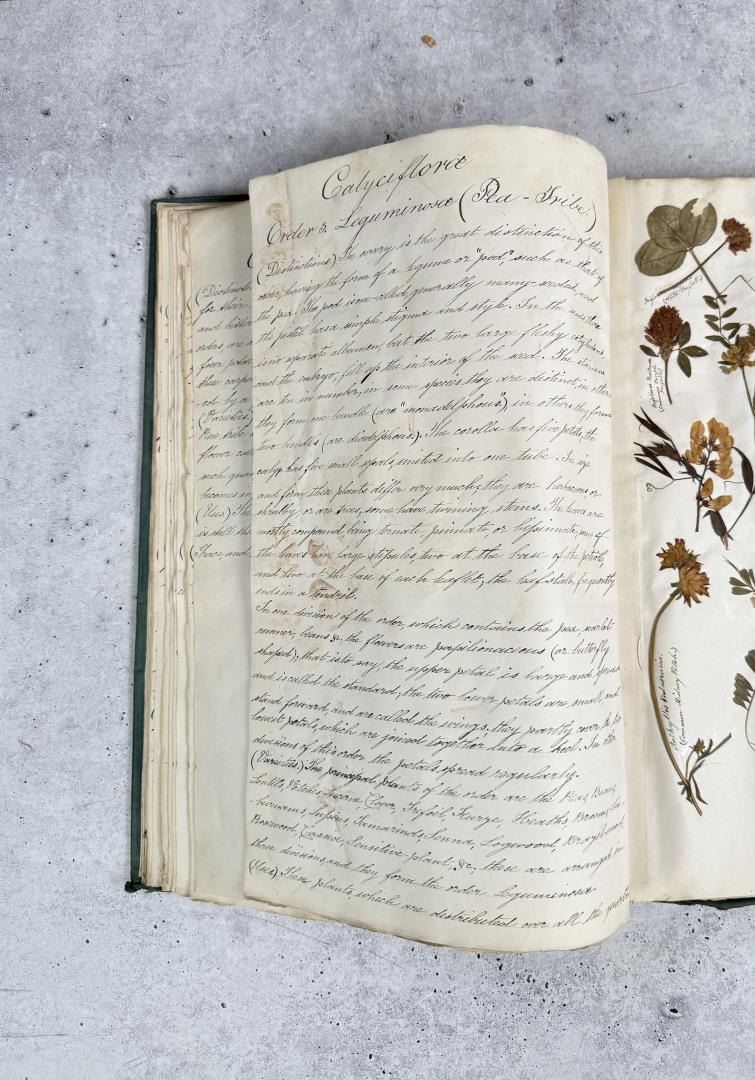 Calycifloræ
Order 3. Leguminosæ (Pea - Tribe.)
(Distinctions) The ovary is the great distinction of this
order, having the form of a legume or "pod", such as that of
the pea. The pod is one-celled, generally many-seeded, and
the pistil has a simple stigma and style. In the seed there
is no separate albumen, but the two large fleshy cotyledons,
and the embryo, fill up the interior of the seed. The stamens
are ten in number, in some species they are distinct, in others
they form one bundle (are "monadelphous") in others they form
two bundles (are diadelphous.) The corolla has five petals, the
calyx has five small sepals, united into one tube. In size
and form, these plants differ very much, they are herbaceous or
shrubby, or are trees, some have twining stems. The leaves are
mostly compound being ternate, pinnate, or bipinnate, many of
the leaves have large stipules, two at, the base of the petiole,
and two at the base of each leaflet, the leaf stalk frequently
ends in a tendril.
In one division of the order, which contains the pea, scarlet
runner, beans &c, the flowers are papilionaceous (or butterfly
shaped), that is to say, the upper petal is large and spread
and is called the standard, the two lower petals are small, and
stand forward, and are called the wings, they partly cover the two
lowest petals, which are joined together into a keel. In other
divisions of this order the petals spread regularly.
(Varieties.) The principal plants of the order are the Peas, Beans,
Lentils, Vetches, Lucerne, Clover, Trefoil, Furze, Heaths, Brooms, La-
burnums, Lupins, Tamarinds, Senna, Logwood, Brazilwood,
Rosewood, Cassia, Sensitive plant, &c, these are arranged in
three divisions, and they form the order Leguminosæ
(Uses) These plants, which are distributed over all the quarters
(Distinctions
for their
and bitter
orders are a
four petals
these carpels
cut by a
(Varieties)
flower
such
becomes in
(Uses) The
is still the
(Trace, and
Anthyllis Vulneraria.
(Common Kidney Vetch)